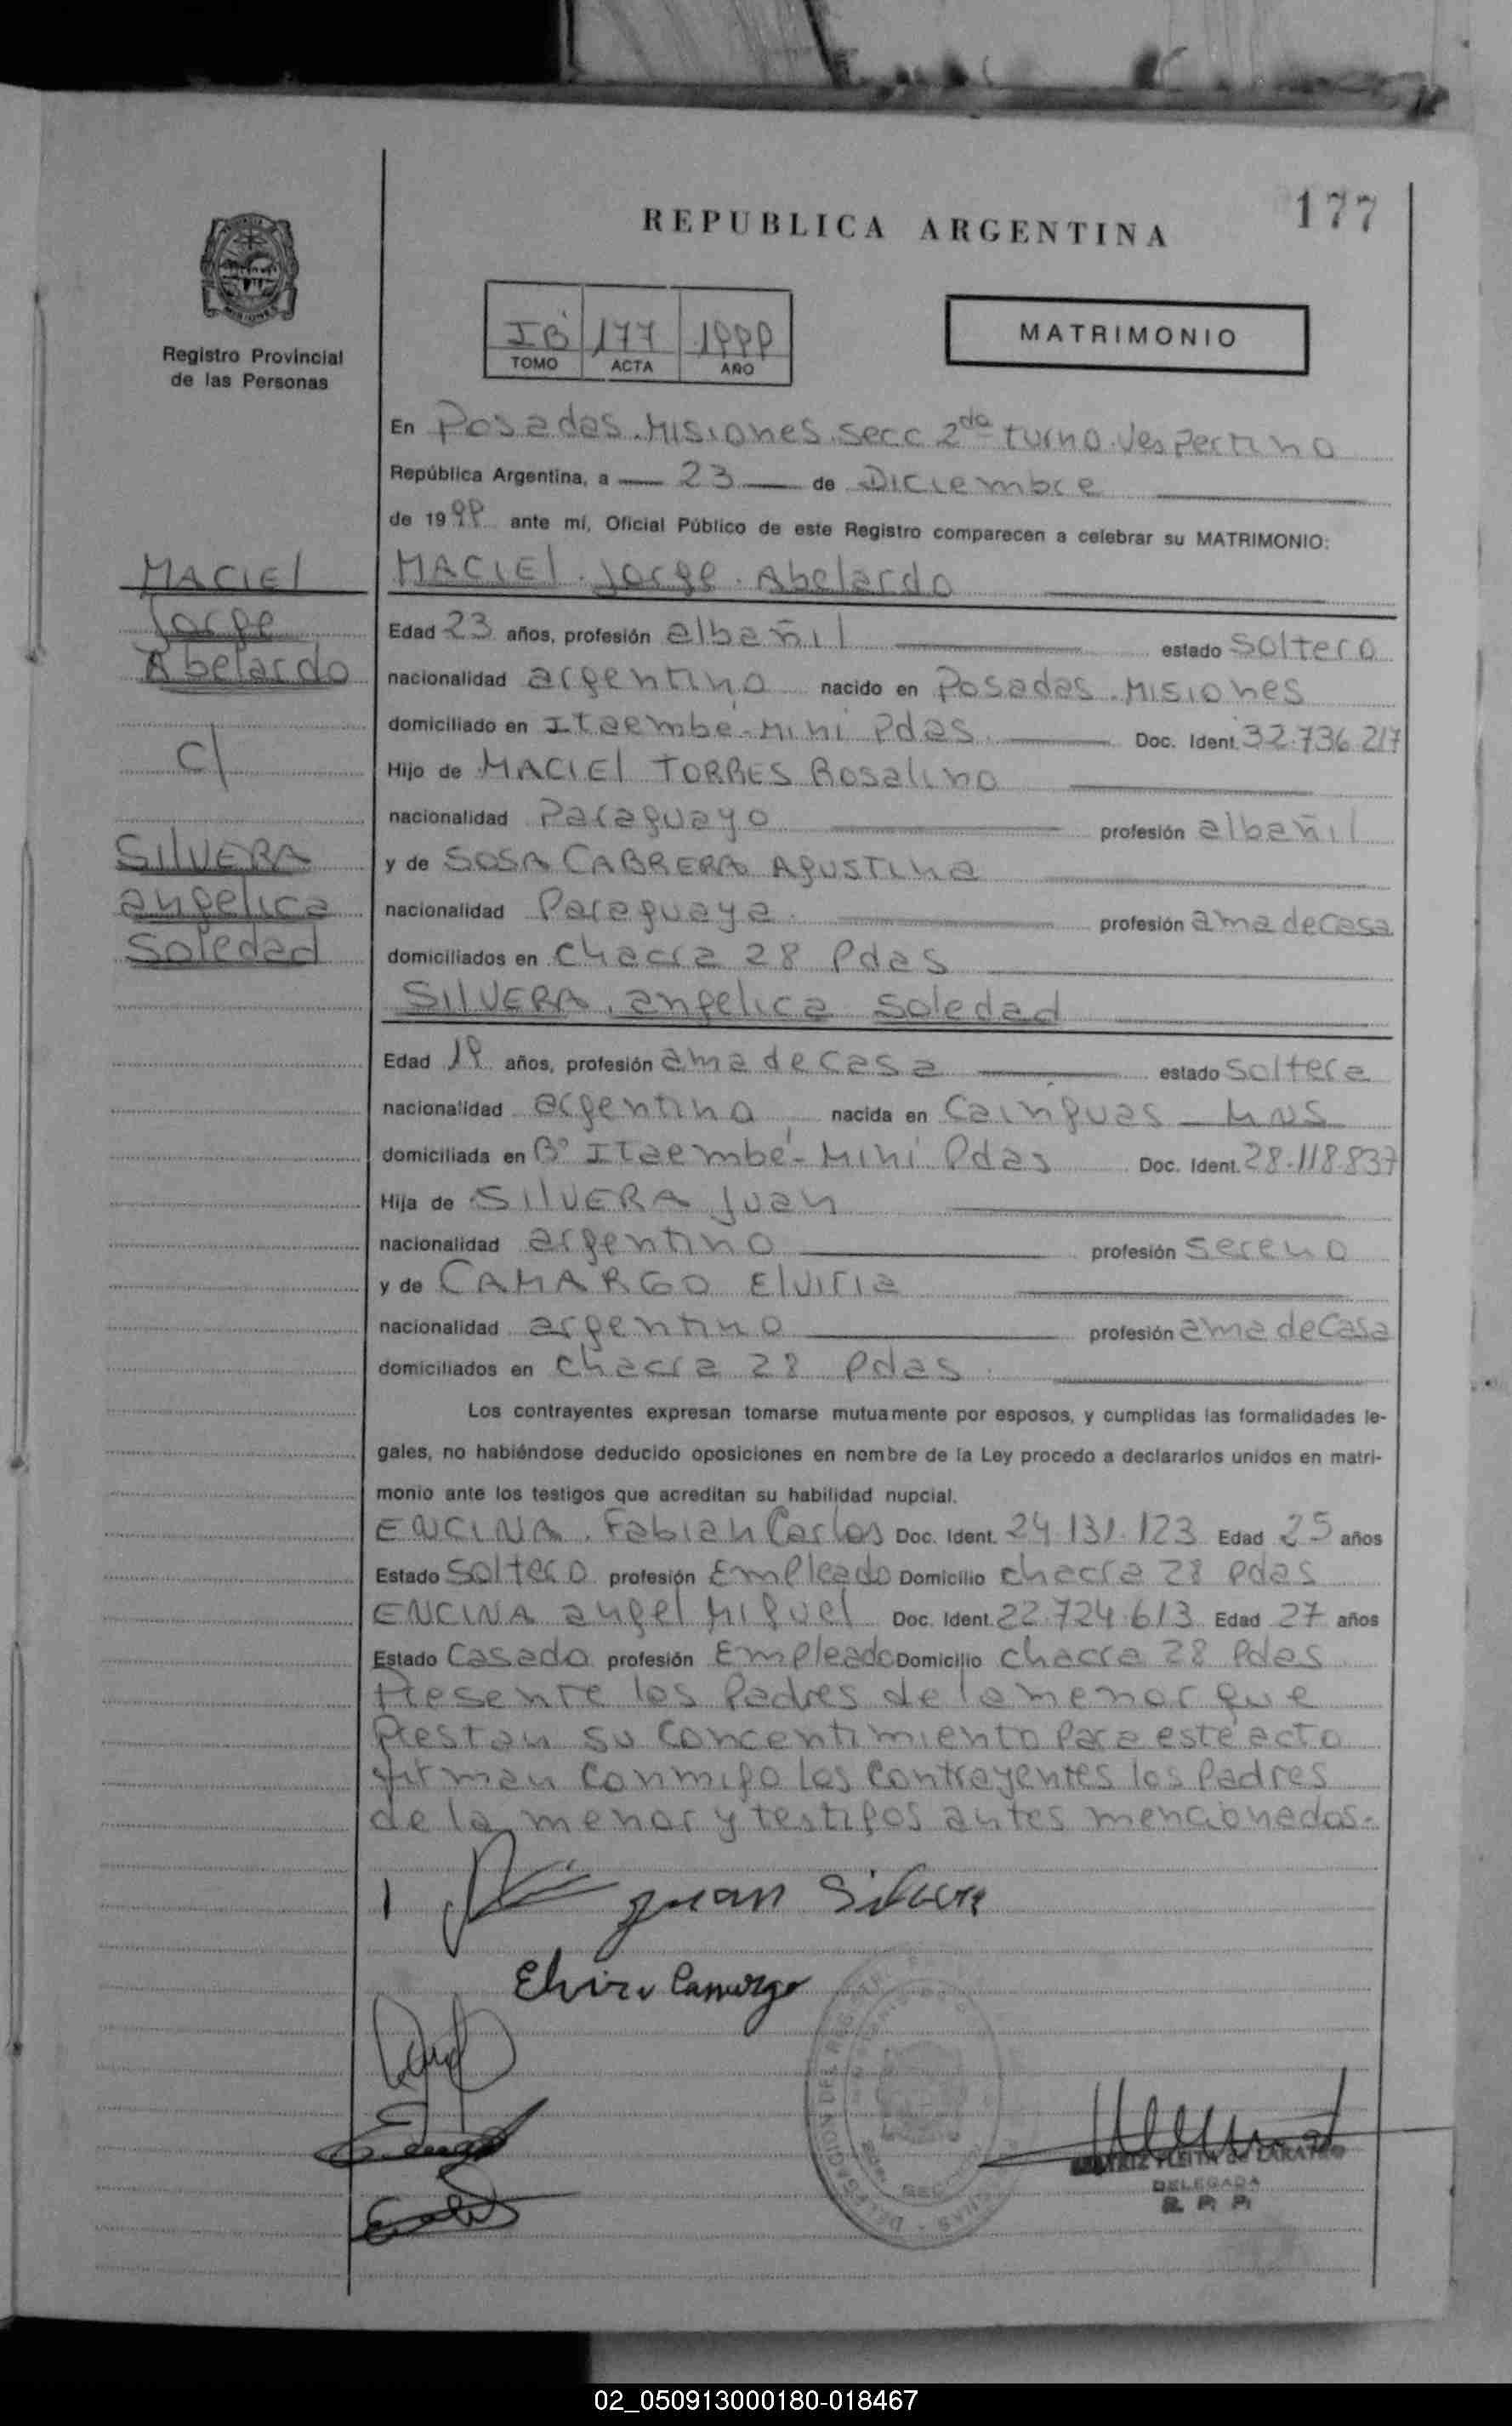 177
REPUBLICA ARGENTINA
MISIONES
Registro Provincial
de las Personas
IB 177 1999
TOMO ACTA AÑO
MATRIMONIO
En Posadas. Misiones. secc 2da turno. Vespertino
República Argentina, a 23 de Diciembre
de 1999 ante mí, Oficial Público de este Registro comparecen a celebrar su MATRIMONIO:
MACIEL
Jorge
Abelardo
C/
SILVERA
angelica
Soledad
MACIEL. Jorge. Abelardo
Edad 23 años, profesión albañil estado soltero
nacionalidad argentino nacido en Posadas. Misiones
domiciliado en Itaembé-Miní Pdas. Doc. Ident. 32.736.217
Hijo de MACIEL TORRES Rosalino
nacionalidad Paraguayo profesión albañil
y de SOSA CABRERA Agustina
nacionalidad Paraguaya. profesión ama de casa
domiciliados en chacra 28 Pdas
SILVERA. angelica soledad
Edad 19 años, profesión ama de casa estado soltera
nacionalidad argentina nacida en Cainguas MNS
domiciliada en B° Itaembé-Miní Pdas Doc. Ident. 28.118.837
Hija de SILVERA Juan
nacionalidad argentino profesión sereno
y de CAMARGO Elviria
nacionalidad argentino profesión ama de Casa
domiciliados en chacra 28 Pdas.
Los contrayentes expresan tomarse mutuamente por esposos, y cumplidas las formalidades le-
gales, no habiéndose deducido oposiciones en nombre de la Ley procedo a declararlos unidos en matri-
monio ante los testigos que acreditan su habilidad nupcial.
ENCINA. Fabian Carlos Doc. Ident. 24.131.123 Edad 25 años
Estado soltero profesión Empleado Domicilio chacra 28 Pdas
ENCINA angel Miguel Doc. Ident. 22.724.613 Edad 27 años
Estado Casado profesión Empleado Domicilio chacra 28 Pdas.
Presente los Padres de la menor que
Prestan su Concentimiento Para este acto
firman conmigo los contrayentes los Padres
de la menor y testigos antes mencionados.-
Juan Silvera
Elvira Camargo
DELEGADA
R. P. P.
02_050913000180-018467